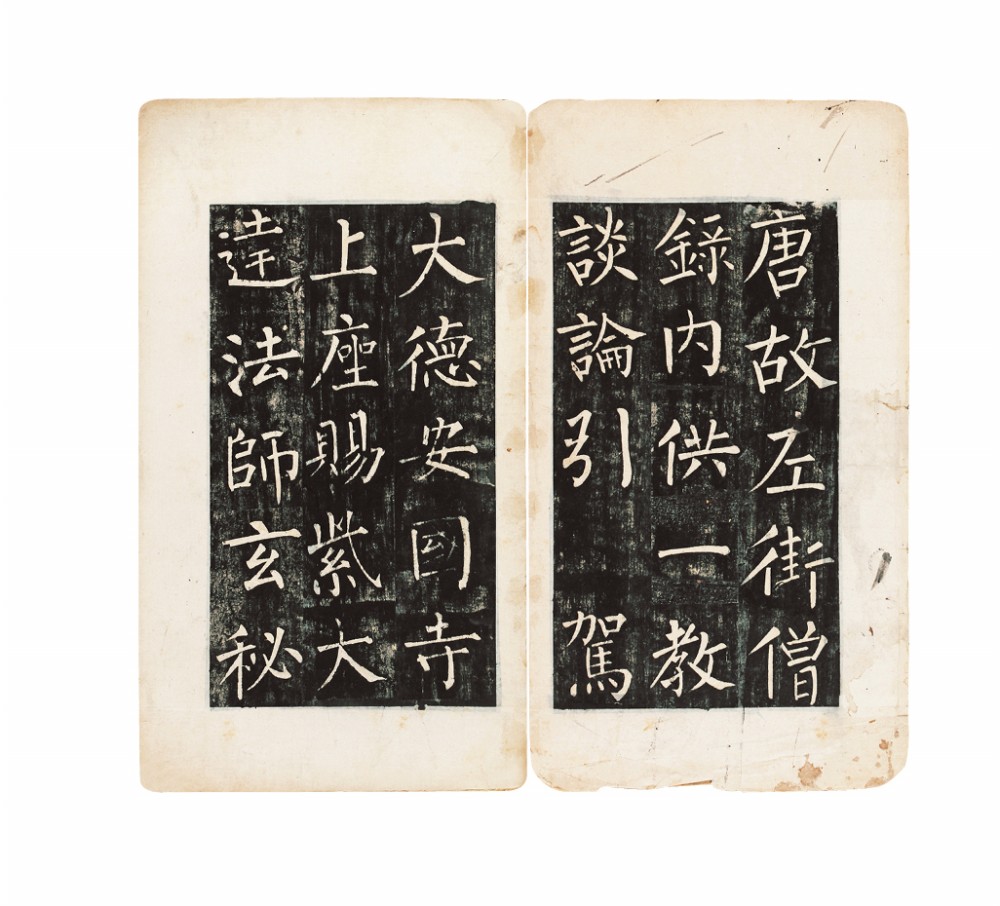 唐故左街僧
錄內供一教
談論引駕
大德安國寺
上座賜紫大
達法師玄秘